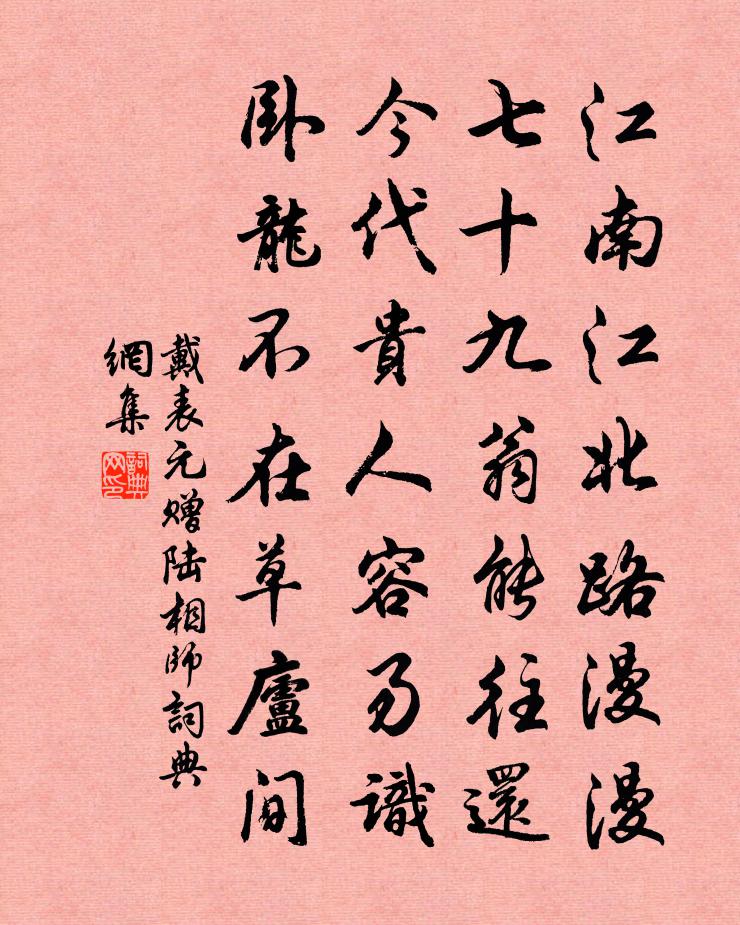 江南江北路漫漫
七十九翁能往還
今代貴人容易識
卧龍不在草廬间
戴表元赠陆相師詞典
網集
詞典网印